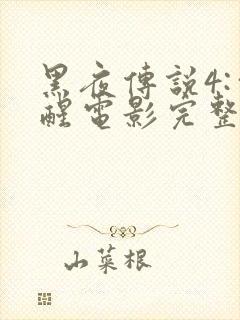 黑夜傳説4:
醒電影完整
山菜根